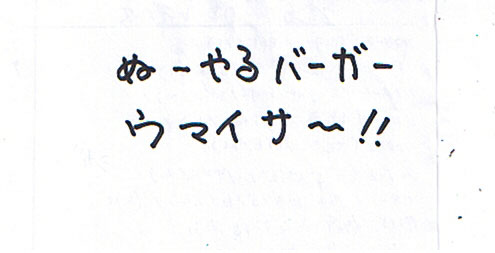 ぬーやるバーガー
ウマイサ〜!!